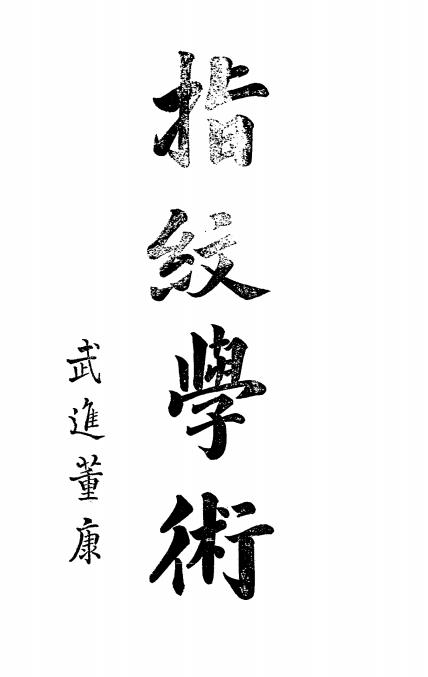 指紋學術
武進董康